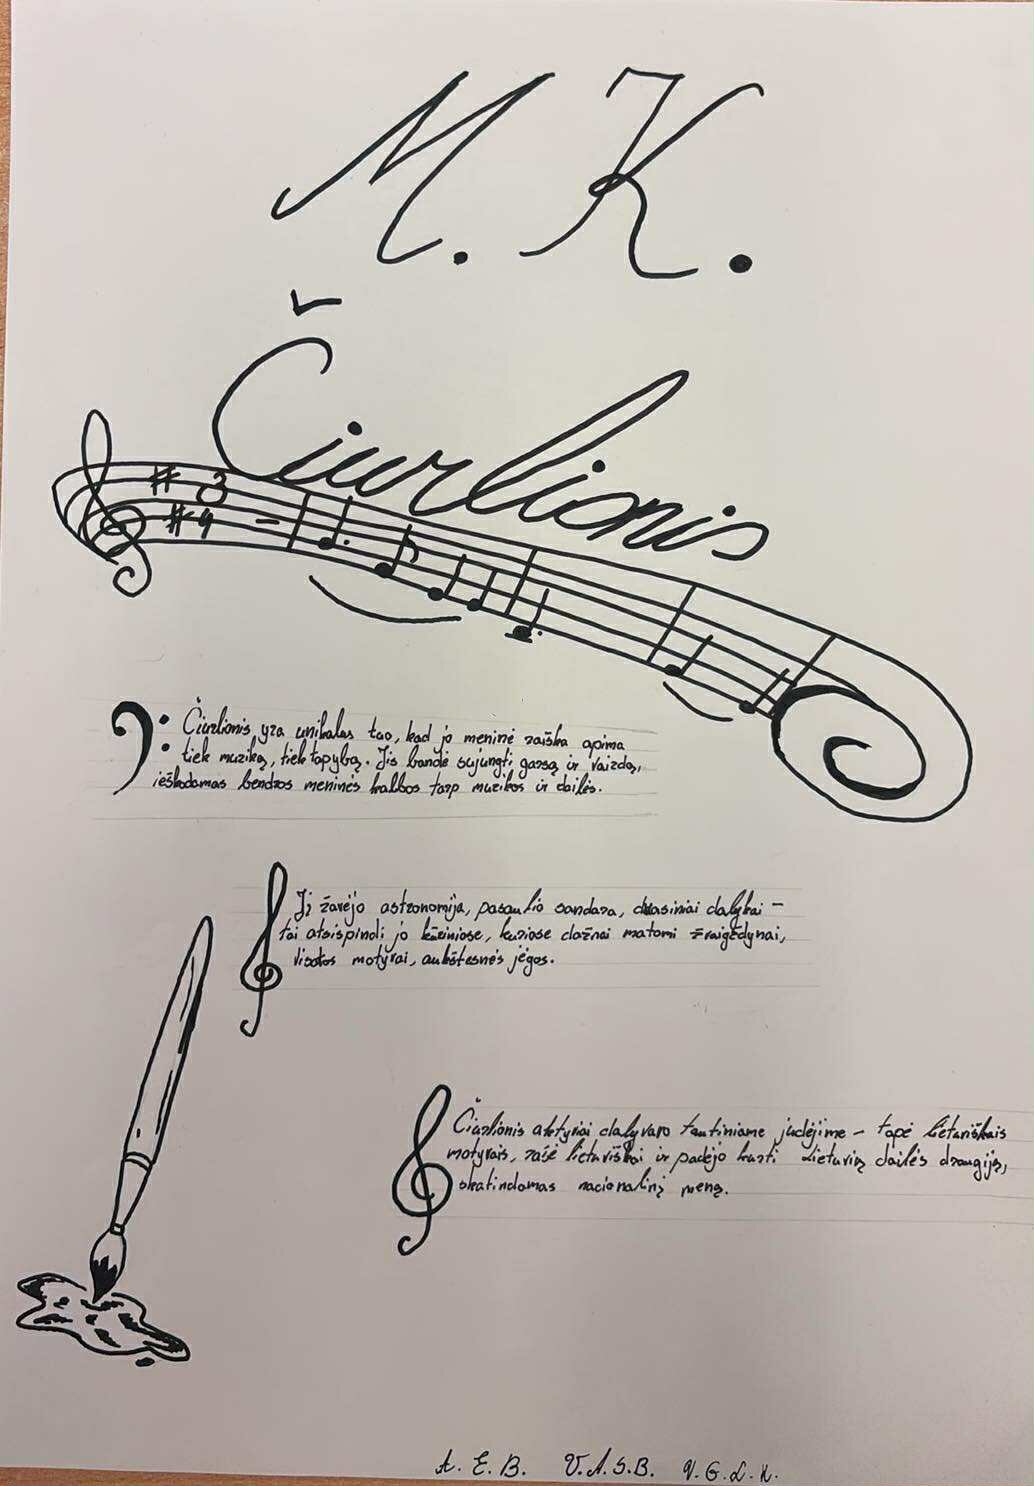 M. K.
Čiurlionis
3
4
Čiurlionis yra unikalus tuo, kad jo meninė raiška apima
tiek muziką, tiek tapybą. Jis bandė sujungti garsą ir vaizdą,
ieškodamas bendros meninės kalbos tarp muzikos ir dailės.
Jį žavėjo astronomija, pasaulio sandara, dvasiniai dalykai –
tai atsispindi jo kūriniuose, kuriose dažnai matomi žvaigždynai,
visatos motyvai, aukštesnės jėgos.
Čiurlionis aktyviai dalyvavo tautiniame judėjime – tapė lietuviškais
motyvais, rašė lietuviškai ir padėjo kurti Lietuvių dailės draugiją,
skatindamas nacionalinį meną.
A. E. B. V. A. S. B. V. G. L. K.